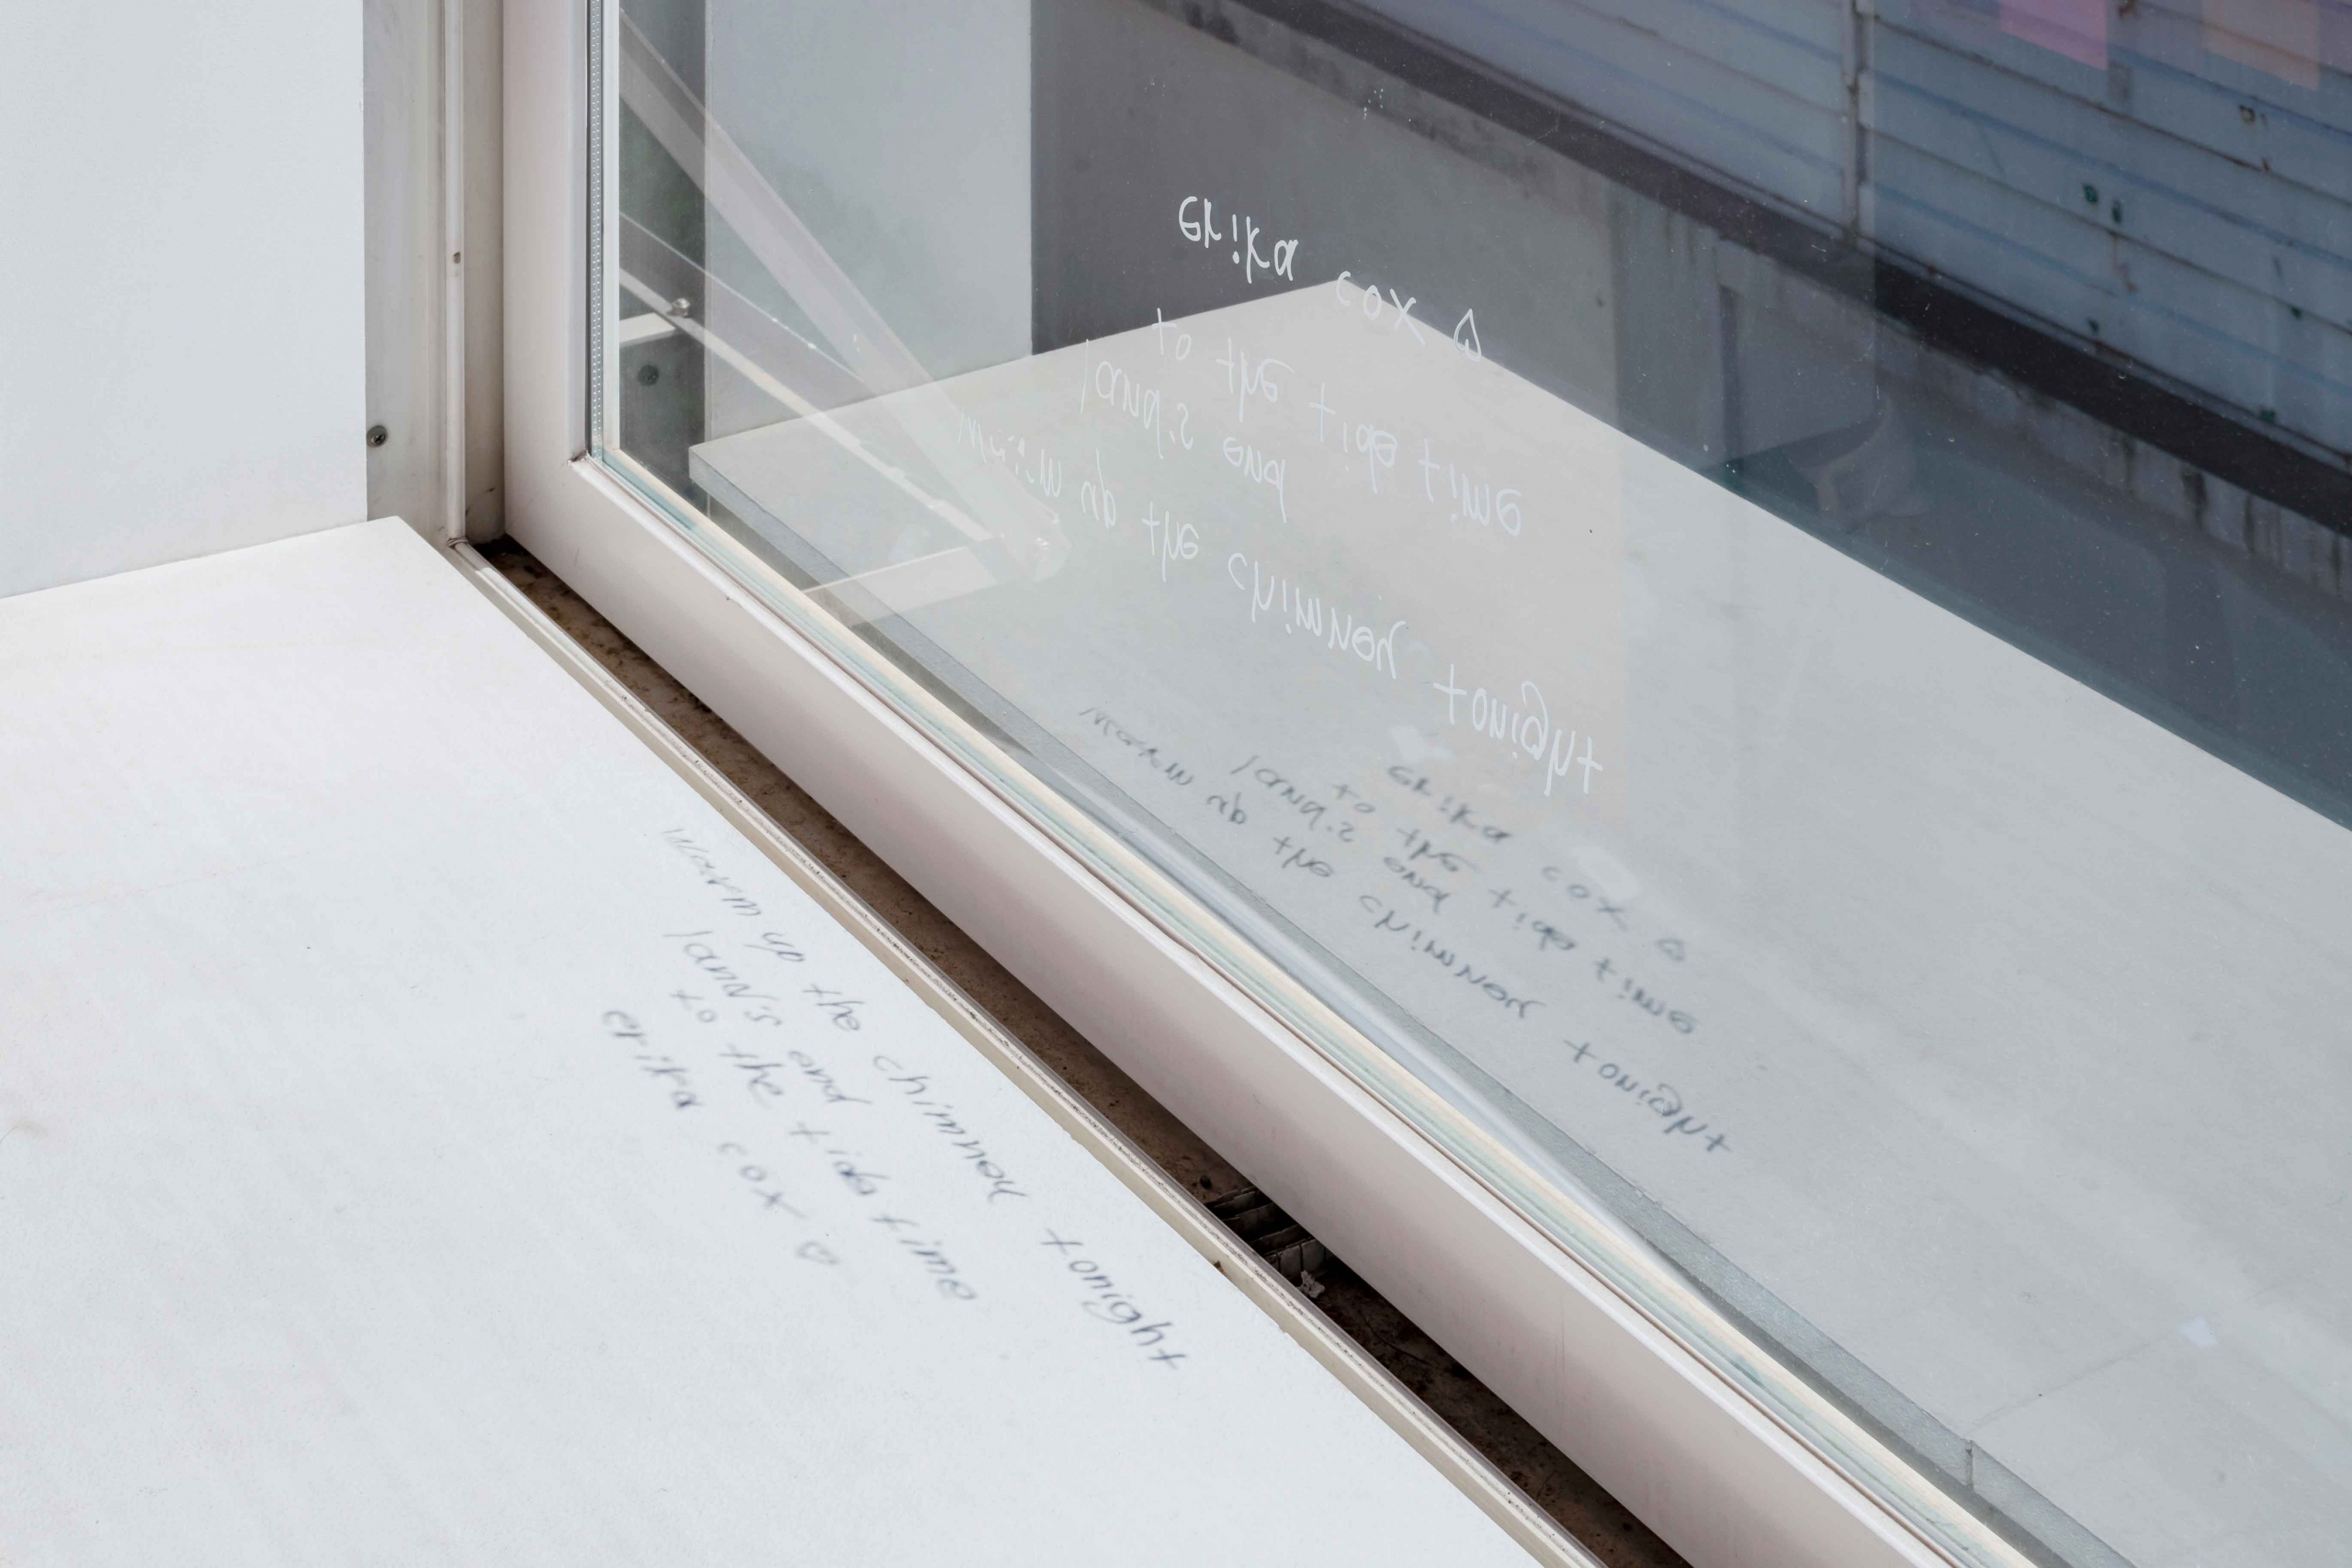 warm up the chimney tonight
land's end
to the tide time
erika cox ♡